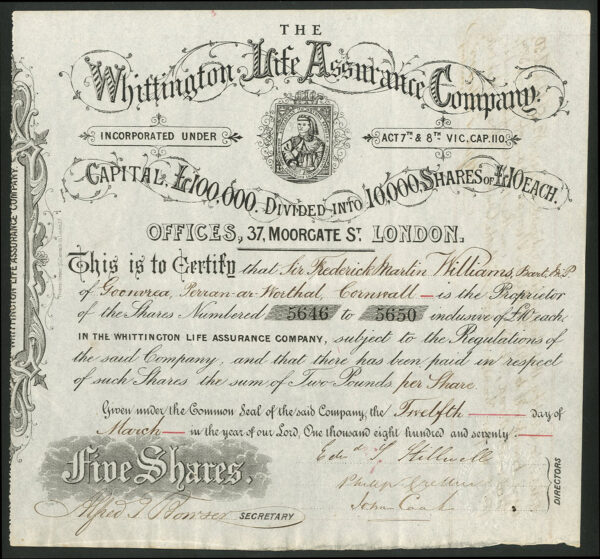 THE
Whittington Life Assurance Company.
INCORPORATED UNDER
ACT 7TH & 8TH VIC. CAP. 110.
CAPITAL, £100,000, DIVIDED INTO 10,000 SHARES OF £10 EACH.
OFFICES, 37, MOORGATE ST. LONDON.
This is to Certify that Sir Frederick Martin Williams, Bart. M.P
of Goonvrea, Perran-ar-Worthal, Cornwall is the Proprietor
of the Shares Numbered 5646 to 5650 inclusive of £10 each
IN THE WHITTINGTON LIFE ASSURANCE COMPANY, subject to the Regulations of
the said Company, and that there has been paid in respect
of such Shares the sum of Two Pounds per Share.
Given under the Common Seal of the said Company, the Twelfth day of
March in the year of our Lord, One thousand eight hundred and seventy.
Five Shares.
Alfred T Bowser SECRETARY
Stillwell
Philip
John Cook
DIRECTORS
WHITTINGTON LIFE ASSURANCE COMPANY.